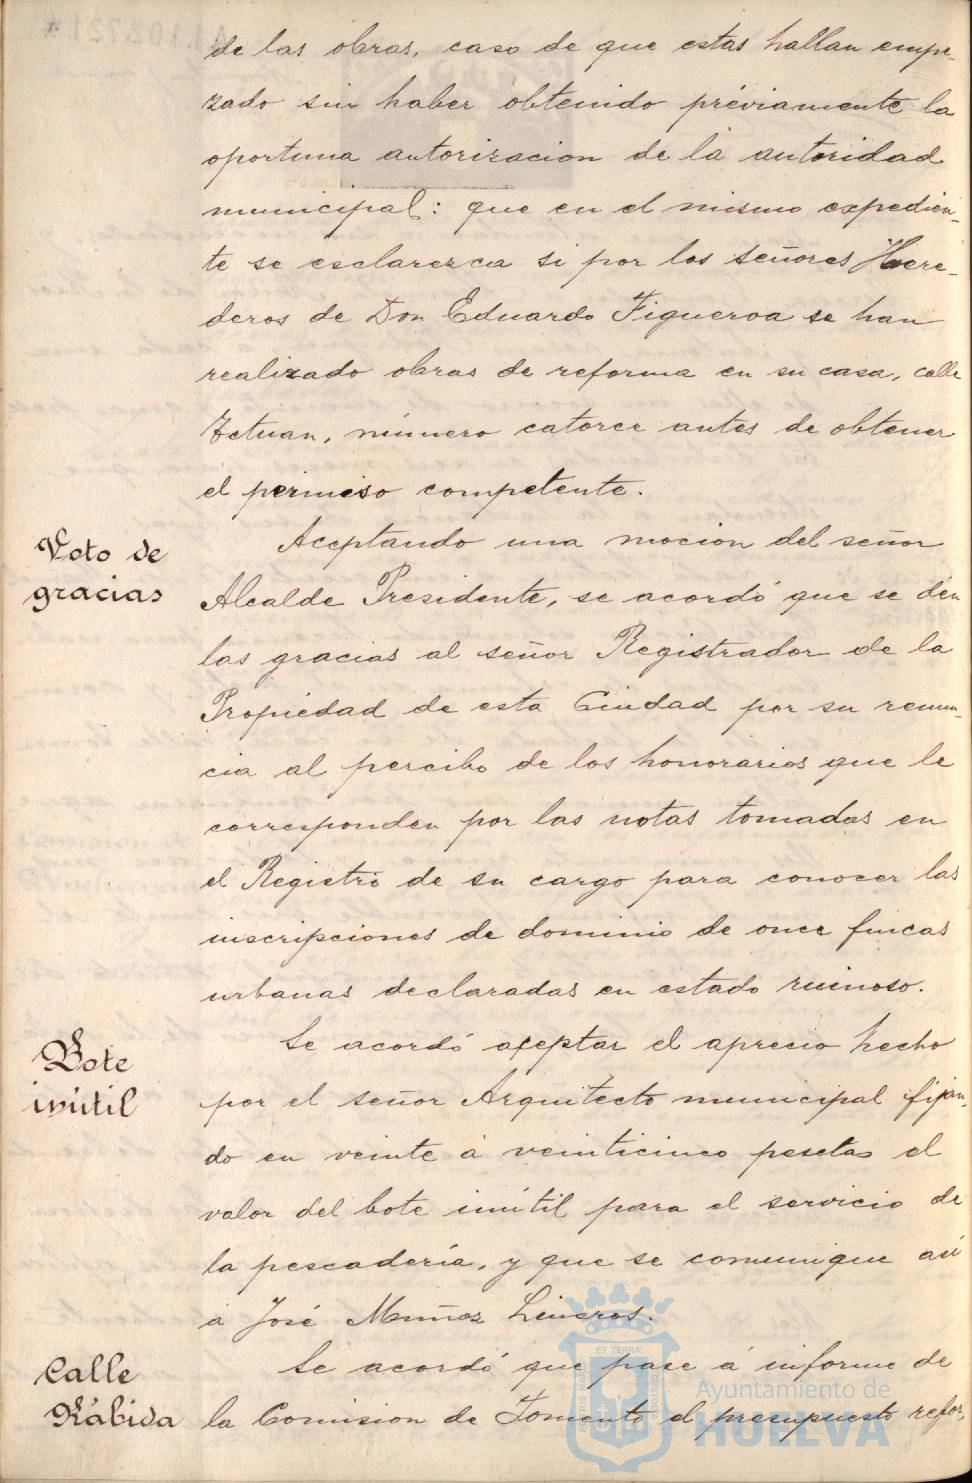 de las obras, caso de que estas hallan empe-
zado sin haber obtenido préviamente la
oportuna autorizacion de la autoridad
municipal: que en el mismo expedien-
te se esclarezca si por los señores Here-
deros de Don Eduardo Figueroa se han
realizado obras de reforma en su casa, calle
Tetuan, número catorce antes de obtener
el permiso competente.
Voto de
gracias
Aceptando una mocion del señor
Alcalde Presidente, se acordó que se dén
las gracias al señor Registrador de la
Propiedad de esta Ciudad por su renun-
cia al percibo de los honorarios que le
corresponden por las notas tomadas en
el Registro de su cargo para conocer las
inscripciones de dominio de once fincas
urbanas declaradas en estado ruinoso.
Bote
inútil
Se acordó aceptar el aprecio hecho
por el señor Arquitecto municipal fijan-
do en veinte á veinticinco pesetas el
valor del bote inútil para el servicio de
la pescadería, y que se comunique así
á José Muñoz Lineros.
Calle
Rábida
Se acordó que pase á informe de
la Comision de Fomento el presupuesto refor-
Ayuntamiento de
HUELVA